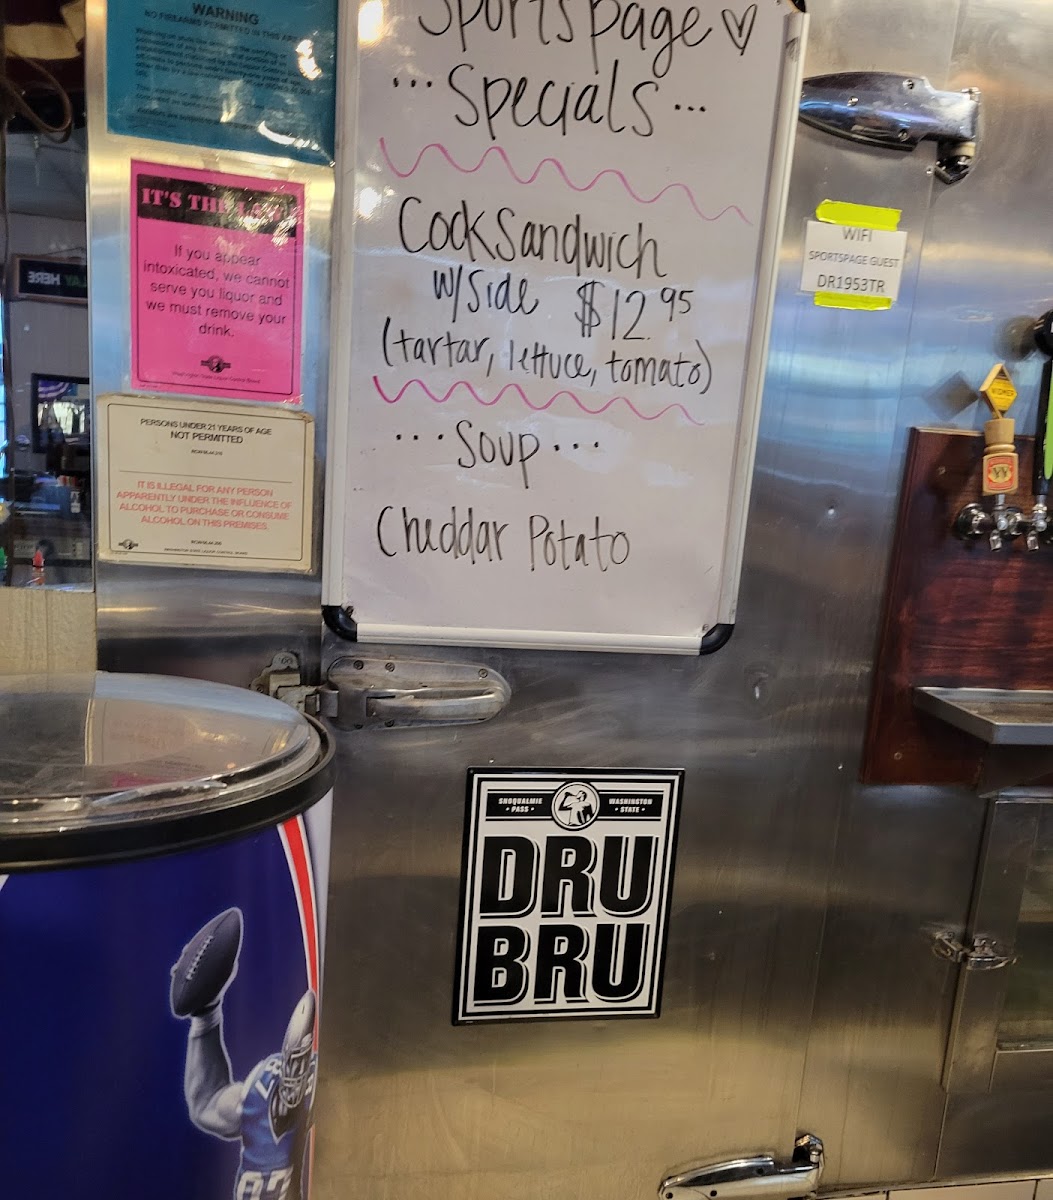 Sportspage
...Specials...
CockSandwich
w/side $12.95
(tartar, lettuce, tomato)
...Soup...
Cheddar Potato
WARNING
NO FIREARMS PERMITTED IN THIS AREA
IT'S THE LAW
If you appear
intoxicated, we cannot
serve you liquor and
we must remove your
drink.
Washington State Liquor Control Board
PERSONS UNDER 21 YEARS OF AGE
NOT PERMITTED
IT IS ILLEGAL FOR ANY PERSON
APPARENTLY UNDER THE INFLUENCE OF
ALCOHOL TO PURCHASE OR CONSUME
ALCOHOL ON THIS PREMISES.
WASHINGTON STATE LIQUOR CONTROL BOARD
WIFI
SPORTSPAGE GUEST
DR1953TR
HERE
SNOQUALMIE
• PASS •
WASHINGTON
• STATE •
DRU
BRU